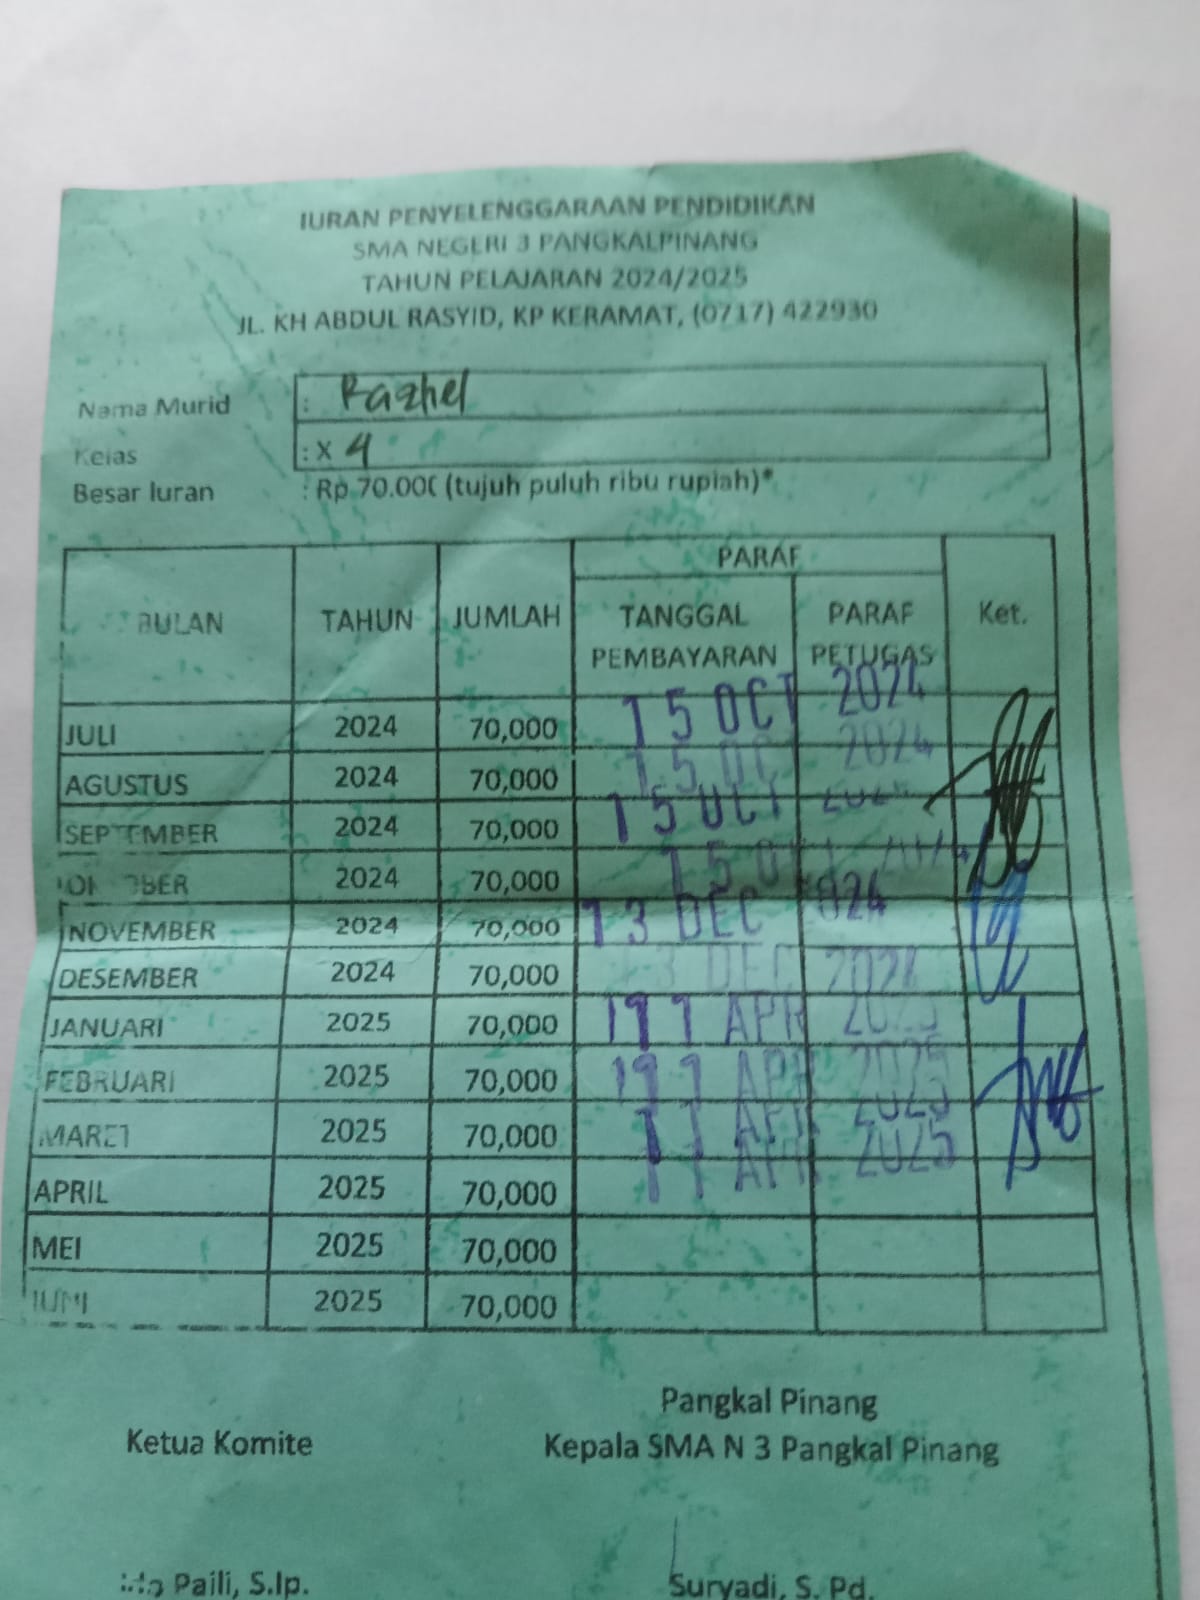 IURAN PENYELENGGARAAN PENDIDIKAN
SMA NEGERI 3 PANGKALPINANG
TAHUN PELAJARAN 2024/2025
JL. KH ABDUL RASYID, KP KERAMAT, (0717) 422930
Nama Murid : Razhel
Kelas : X 4
Besar Iuran : Rp 70.000 (tujuh puluh ribu rupiah)*
PARAF
BULAN TAHUN JUMLAH TANGGAL PEMBAYARAN PARAF PETUGAS Ket.
JULI 2024 70,000 15 OCT 2024
AGUSTUS 2024 70,000 15 OCT 2024
SEPTEMBER 2024 70,000 15 OCT 2024
OKTOBER 2024 70,000 15 OCT 2024
NOVEMBER 2024 70,000 13 DEC 2024
DESEMBER 2024 70,000 13 DEC 2024
JANUARI 2025 70,000 11 APR 2025
FEBRUARI 2025 70,000 11 APR 2025
MARET 2025 70,000 11 APR 2025
APRIL 2025 70,000 11 APR 2025
MEI 2025 70,000
JUNI 2025 70,000
Pangkal Pinang
Ketua Komite Kepala SMA N 3 Pangkal Pinang
Paili, S.Ip. Suryadi, S. Pd.